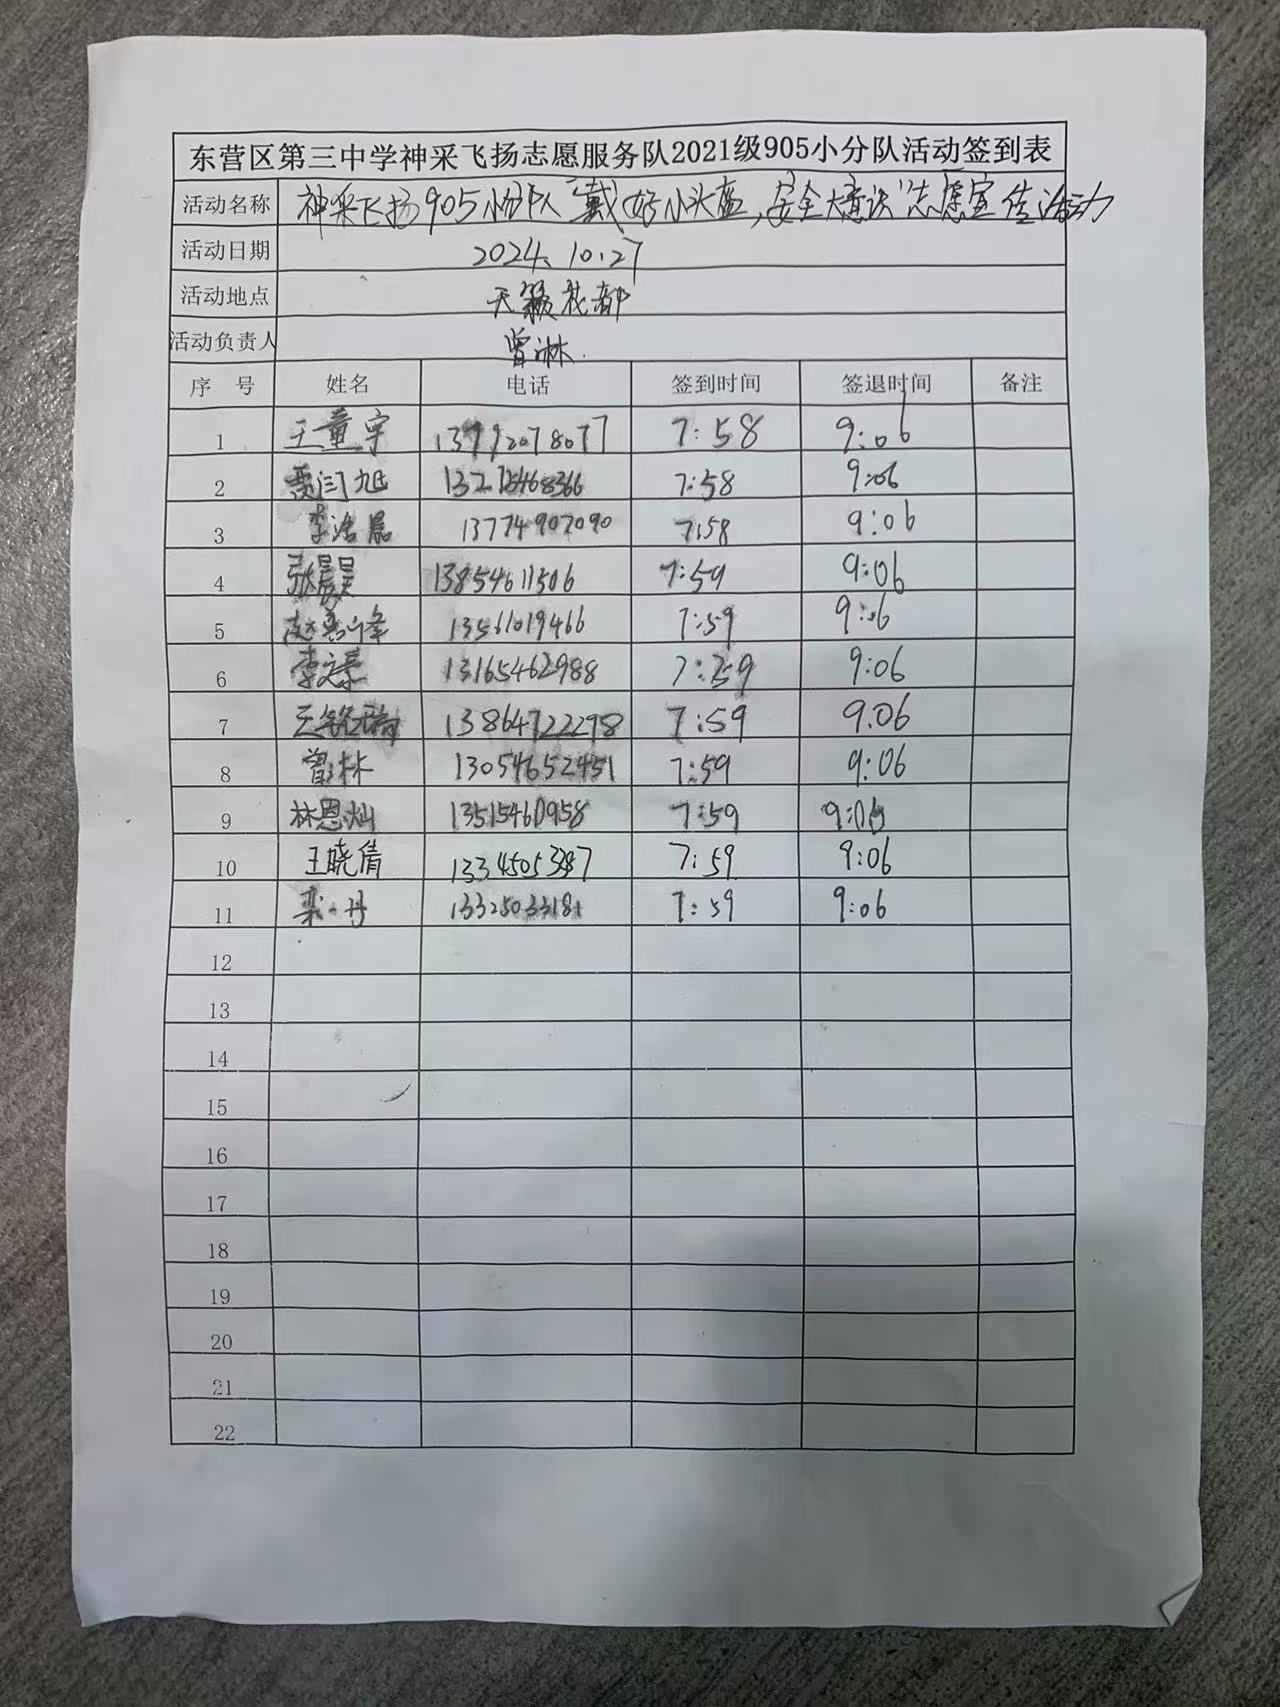 东营区第三中学神采飞扬志愿服务队2021级905小分队活动签到表
活动名称 神采飞扬905小分队"戴好小头盔,安全大意识"志愿宣传活动
活动日期 2024.10.27
活动地点 天籁花都
活动负责人 曾淋
序号 姓名 电话 签到时间 签退时间 备注
1 王童宇 7:58 9:06
2 7:58 9:06
3 13774907090 7:58 9:06
4 张晨昊 13854611506 7:59 9:06
5 13561019466 7:59 9:06
6 13165462988 7:59 9:06
7 13864722298 7:59 9:06
8 13054652451 7:59 9:06
9 林恩灿 7:59 9:06
10 王晓倩 7:59 9:06
11 7:59 9:06
12
13
14
15
16
17
18
19
20
21
22